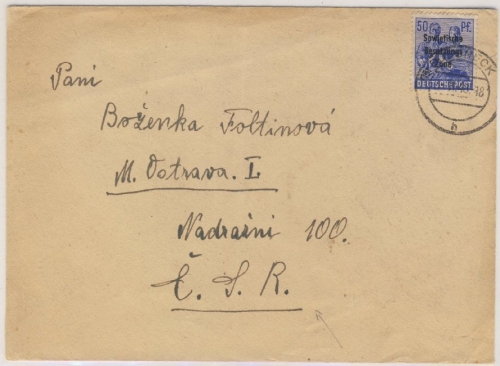 50 Pf.
Sowjetische
Besatzungs
Zone
DEUTSCHE POST
48
h
Paní
Boženka Foltinová
M. Ostrava. I.
Nadražni 100.
Č. S. R.